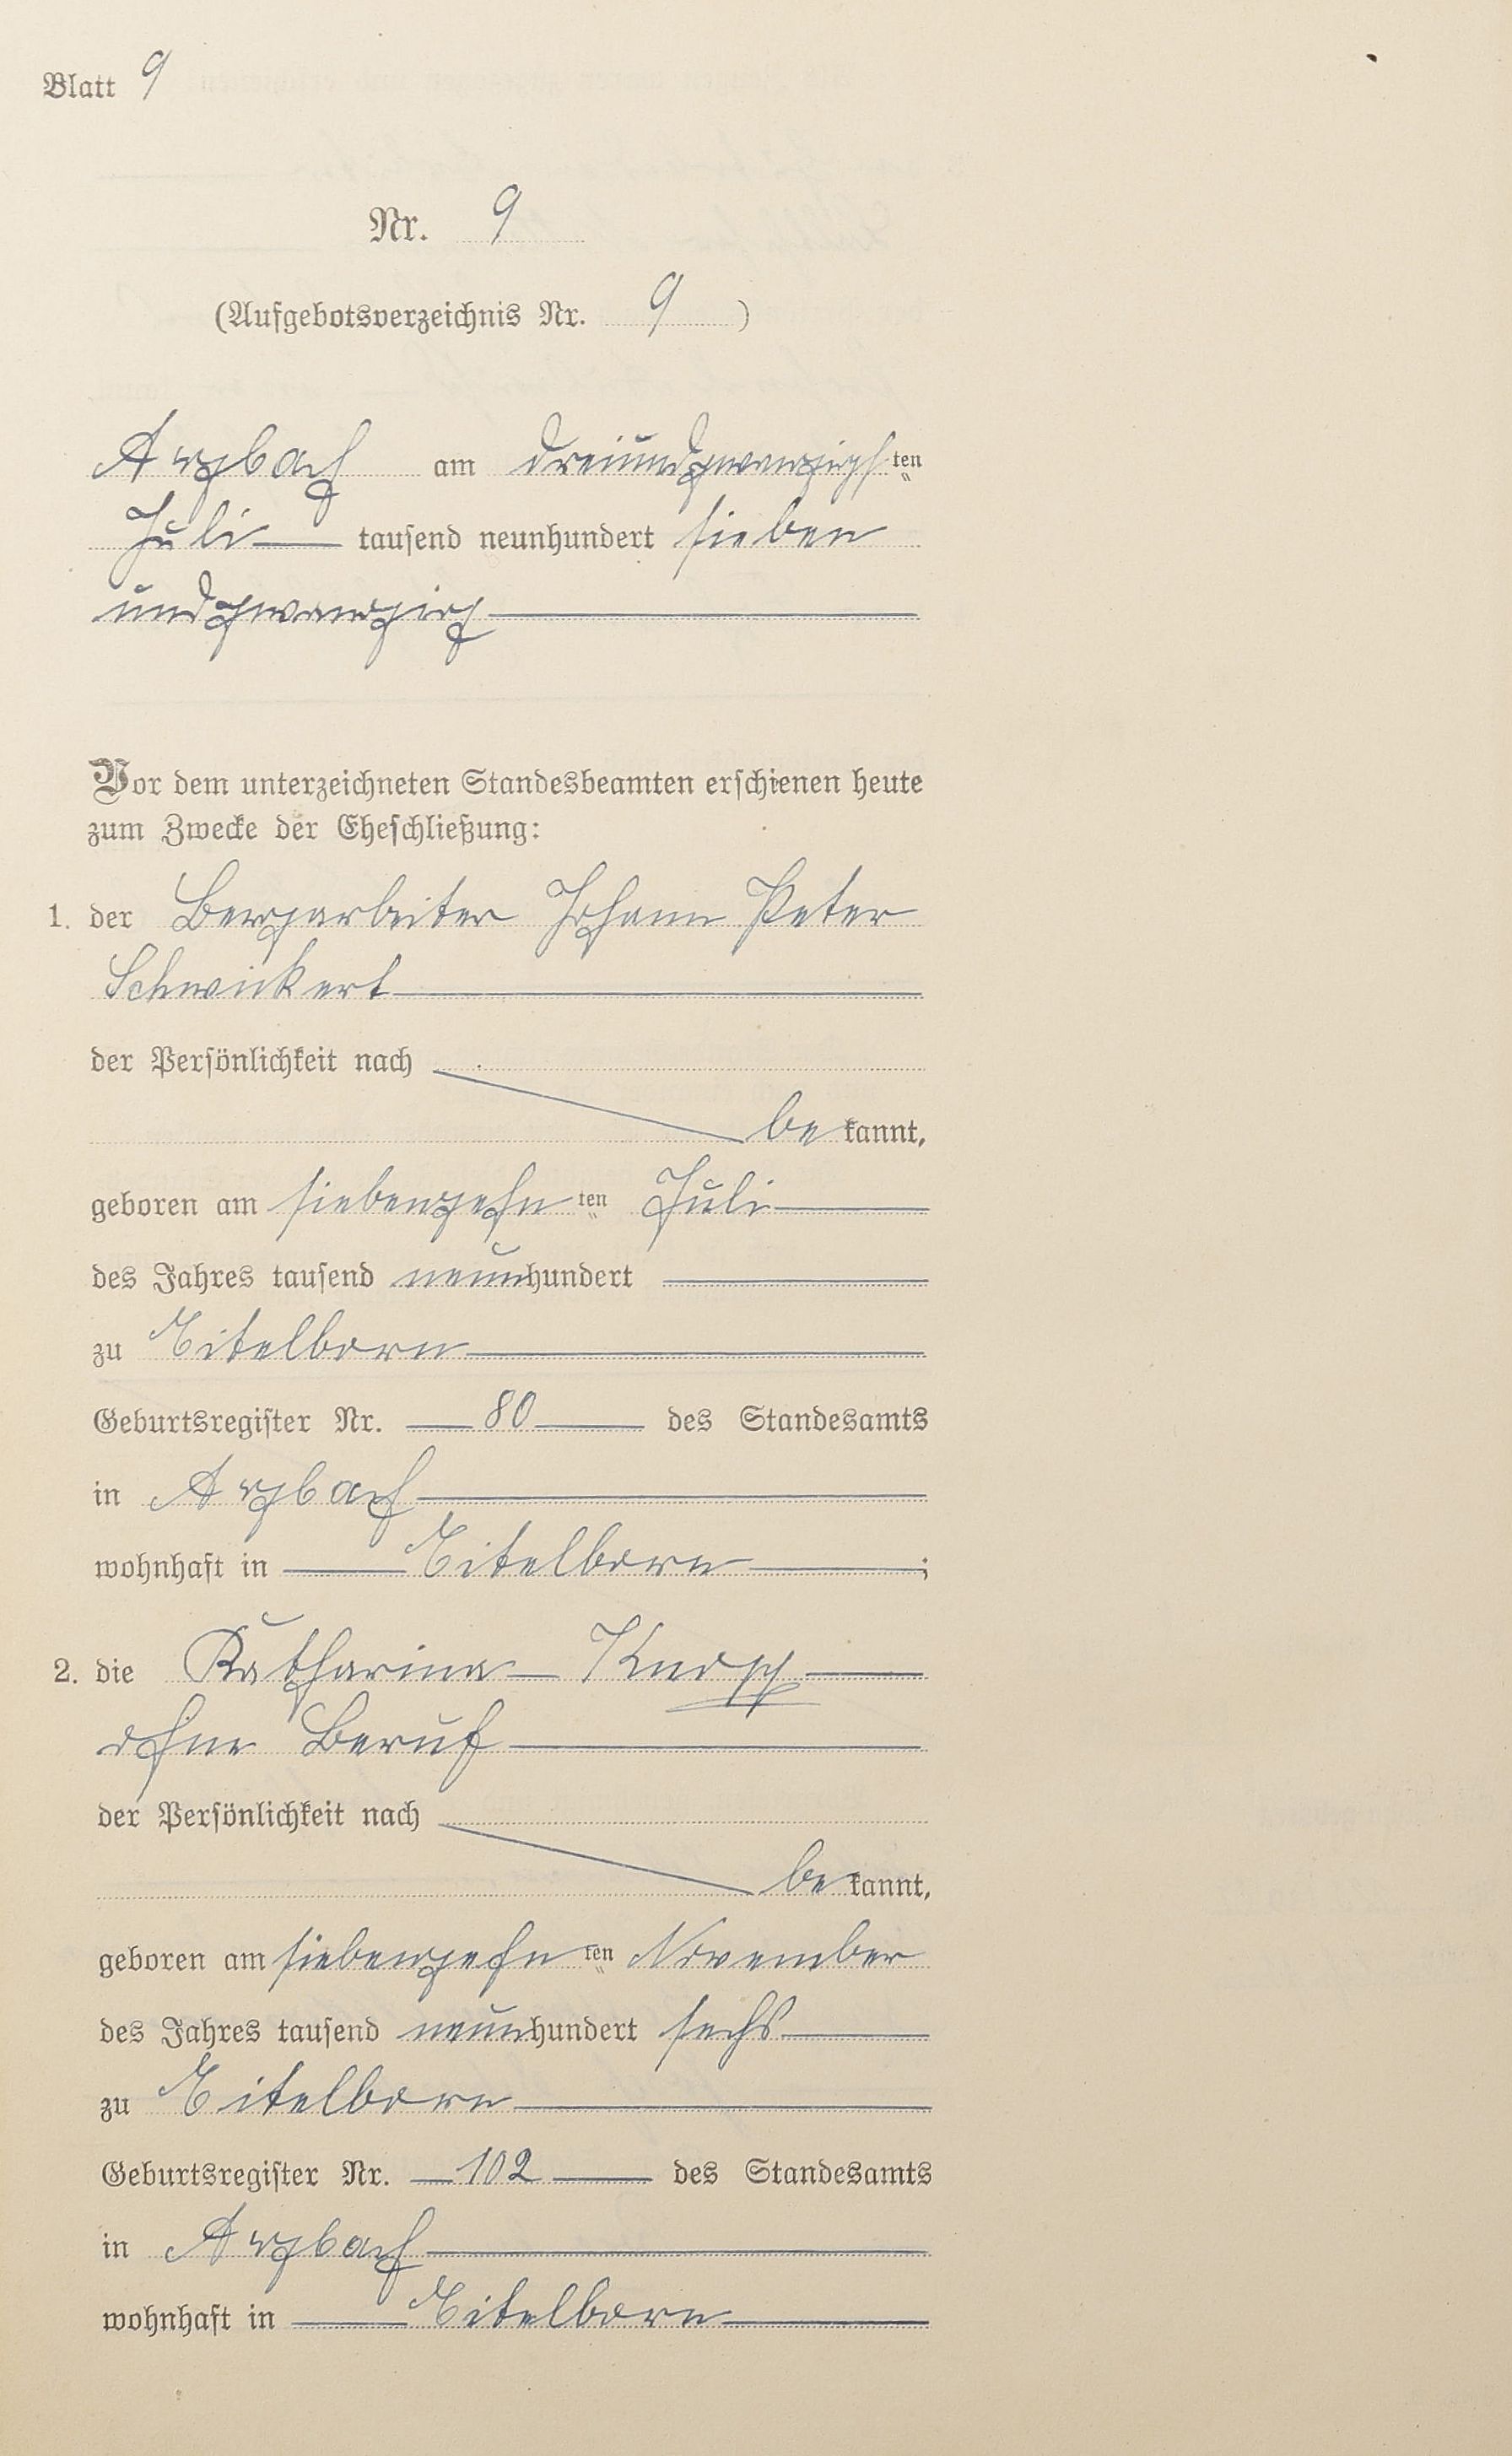 Blatt 9
Nr. 9
(Aufgebotsverzeichnis Nr. 9)
Arzbach am dreiundzwanzigsten
Juli tausend neunhundert sieben
undzwanzig
Vor dem unterzeichneten Standesbeamten erschienen heute
zum Zwecke der Eheschließung:
1. der Bergarbeiter Johann Peter
Schwickert
der Persönlichkeit nach
bekannt,
geboren am siebenzehnten Juli
des Jahres tausend neunhundert
zu Eitelborn
Geburtsregister Nr. 80 des Standesamts
in Arzbach
wohnhaft in Eitelborn;
2. die Katharina Knopp
ohne Beruf
der Persönlichkeit nach
bekannt,
geboren am siebenzehnten November
des Jahres tausend neunhundert sechs
zu Eitelborn
Geburtsregister Nr. 102 des Standesamts
in Arzbach
wohnhaft in Eitelborn